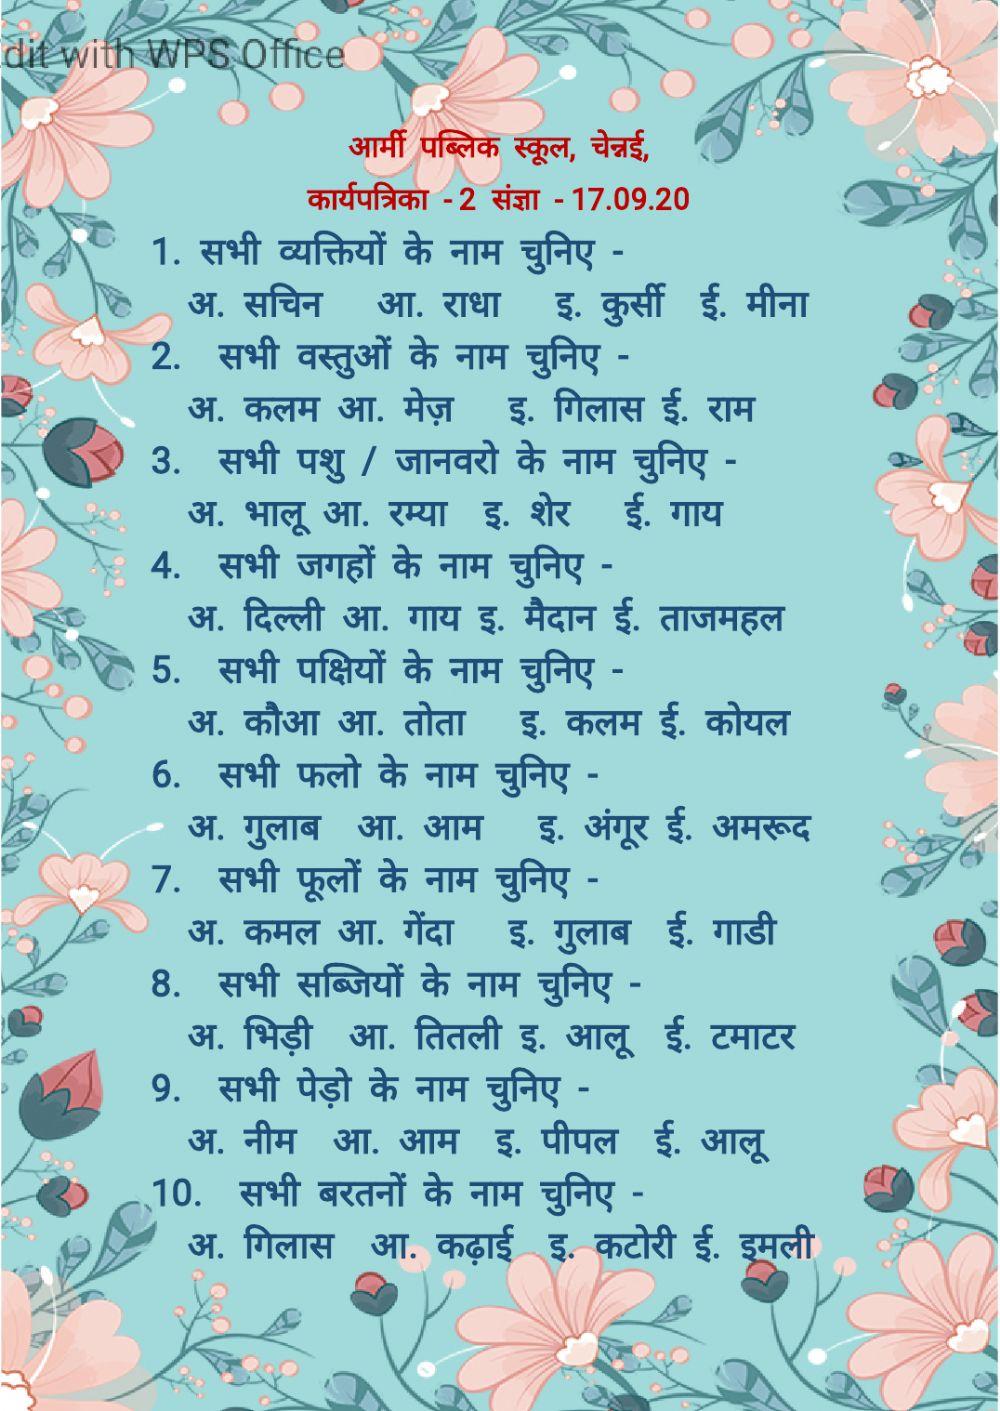 dit with WPS Office
आर्मी पब्लिक स्कूल, चेन्नई,
कार्यपत्रिका - 2 संज्ञा - 17.09.20
1. सभी व्यक्तियों के नाम चुनिए -
अ. सचिन आ. राधा इ. कुर्सी ई. मीना
2. सभी वस्तुओं के नाम चुनिए -
अ. कलम आ. मेज़ इ. गिलास ई. राम
3. सभी पशु / जानवरो के नाम चुनिए -
अ. भालू आ. रम्या इ. शेर ई. गाय
4. सभी जगहों के नाम चुनिए -
अ. दिल्ली आ. गाय इ. मैदान ई. ताजमहल
5. सभी पक्षियों के नाम चुनिए -
अ. कौआ आ. तोता इ. कलम ई. कोयल
6. सभी फलो के नाम चुनिए -
अ. गुलाब आ. आम इ. अंगूर ई. अमरूद
7. सभी फूलों के नाम चुनिए -
अ. कमल आ. गेंदा इ. गुलाब ई. गाडी
8. सभी सब्जियों के नाम चुनिए -
अ. भिड़ी आ. तितली इ. आलू ई. टमाटर
9. सभी पेड़ो के नाम चुनिए -
अ. नीम आ. आम इ. पीपल ई. आलू
10. सभी बरतनों के नाम चुनिए -
अ. गिलास आ. कढ़ाई इ. कटोरी ई. इमली